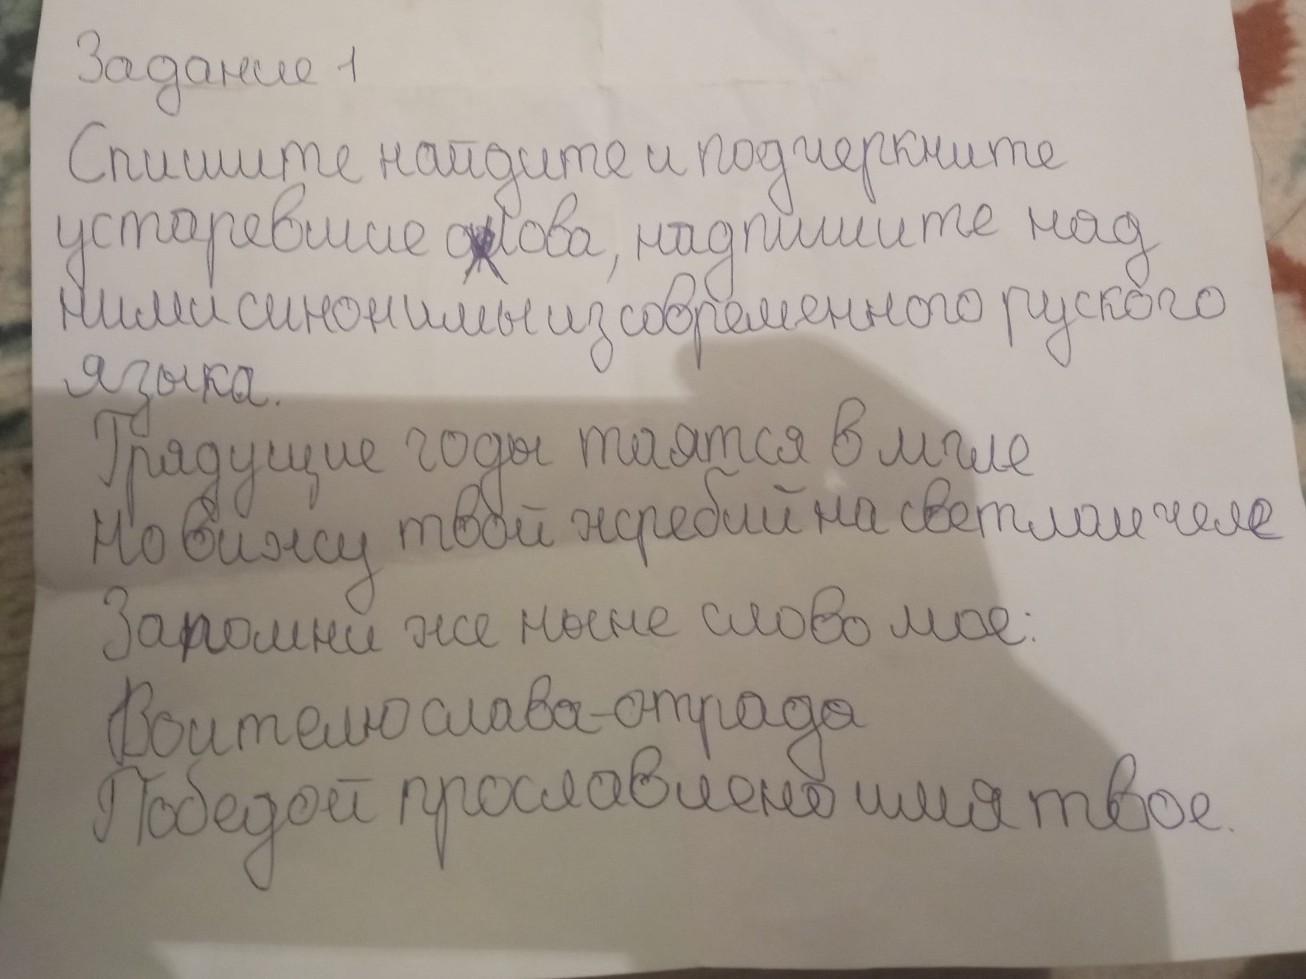 Задание 1
Спишите найдите и подчеркните
устаревшие слова, надпишите над
ними синонимы из современного руского
языка.
Грядущие годы таятся в мгле
Но вижу твой жребий на светлом челе
Запомни же ныне слово мое:
Воителю слава-отрада
Победой прославлено имя твое.